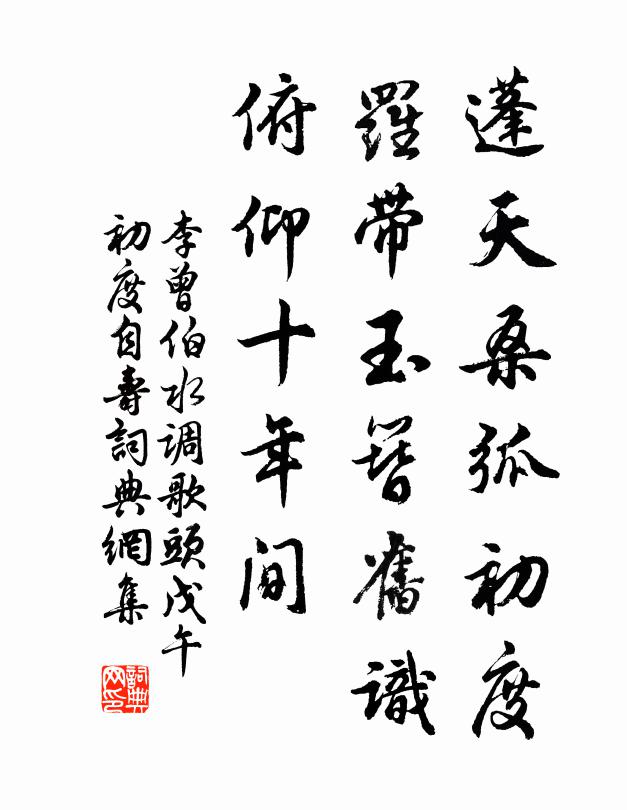 蓬天桑弧初度
羅帶玉簪舊識
俯仰十年间
李曾伯水调歌頭戊午
初度自壽詞典網集
詞典
网印